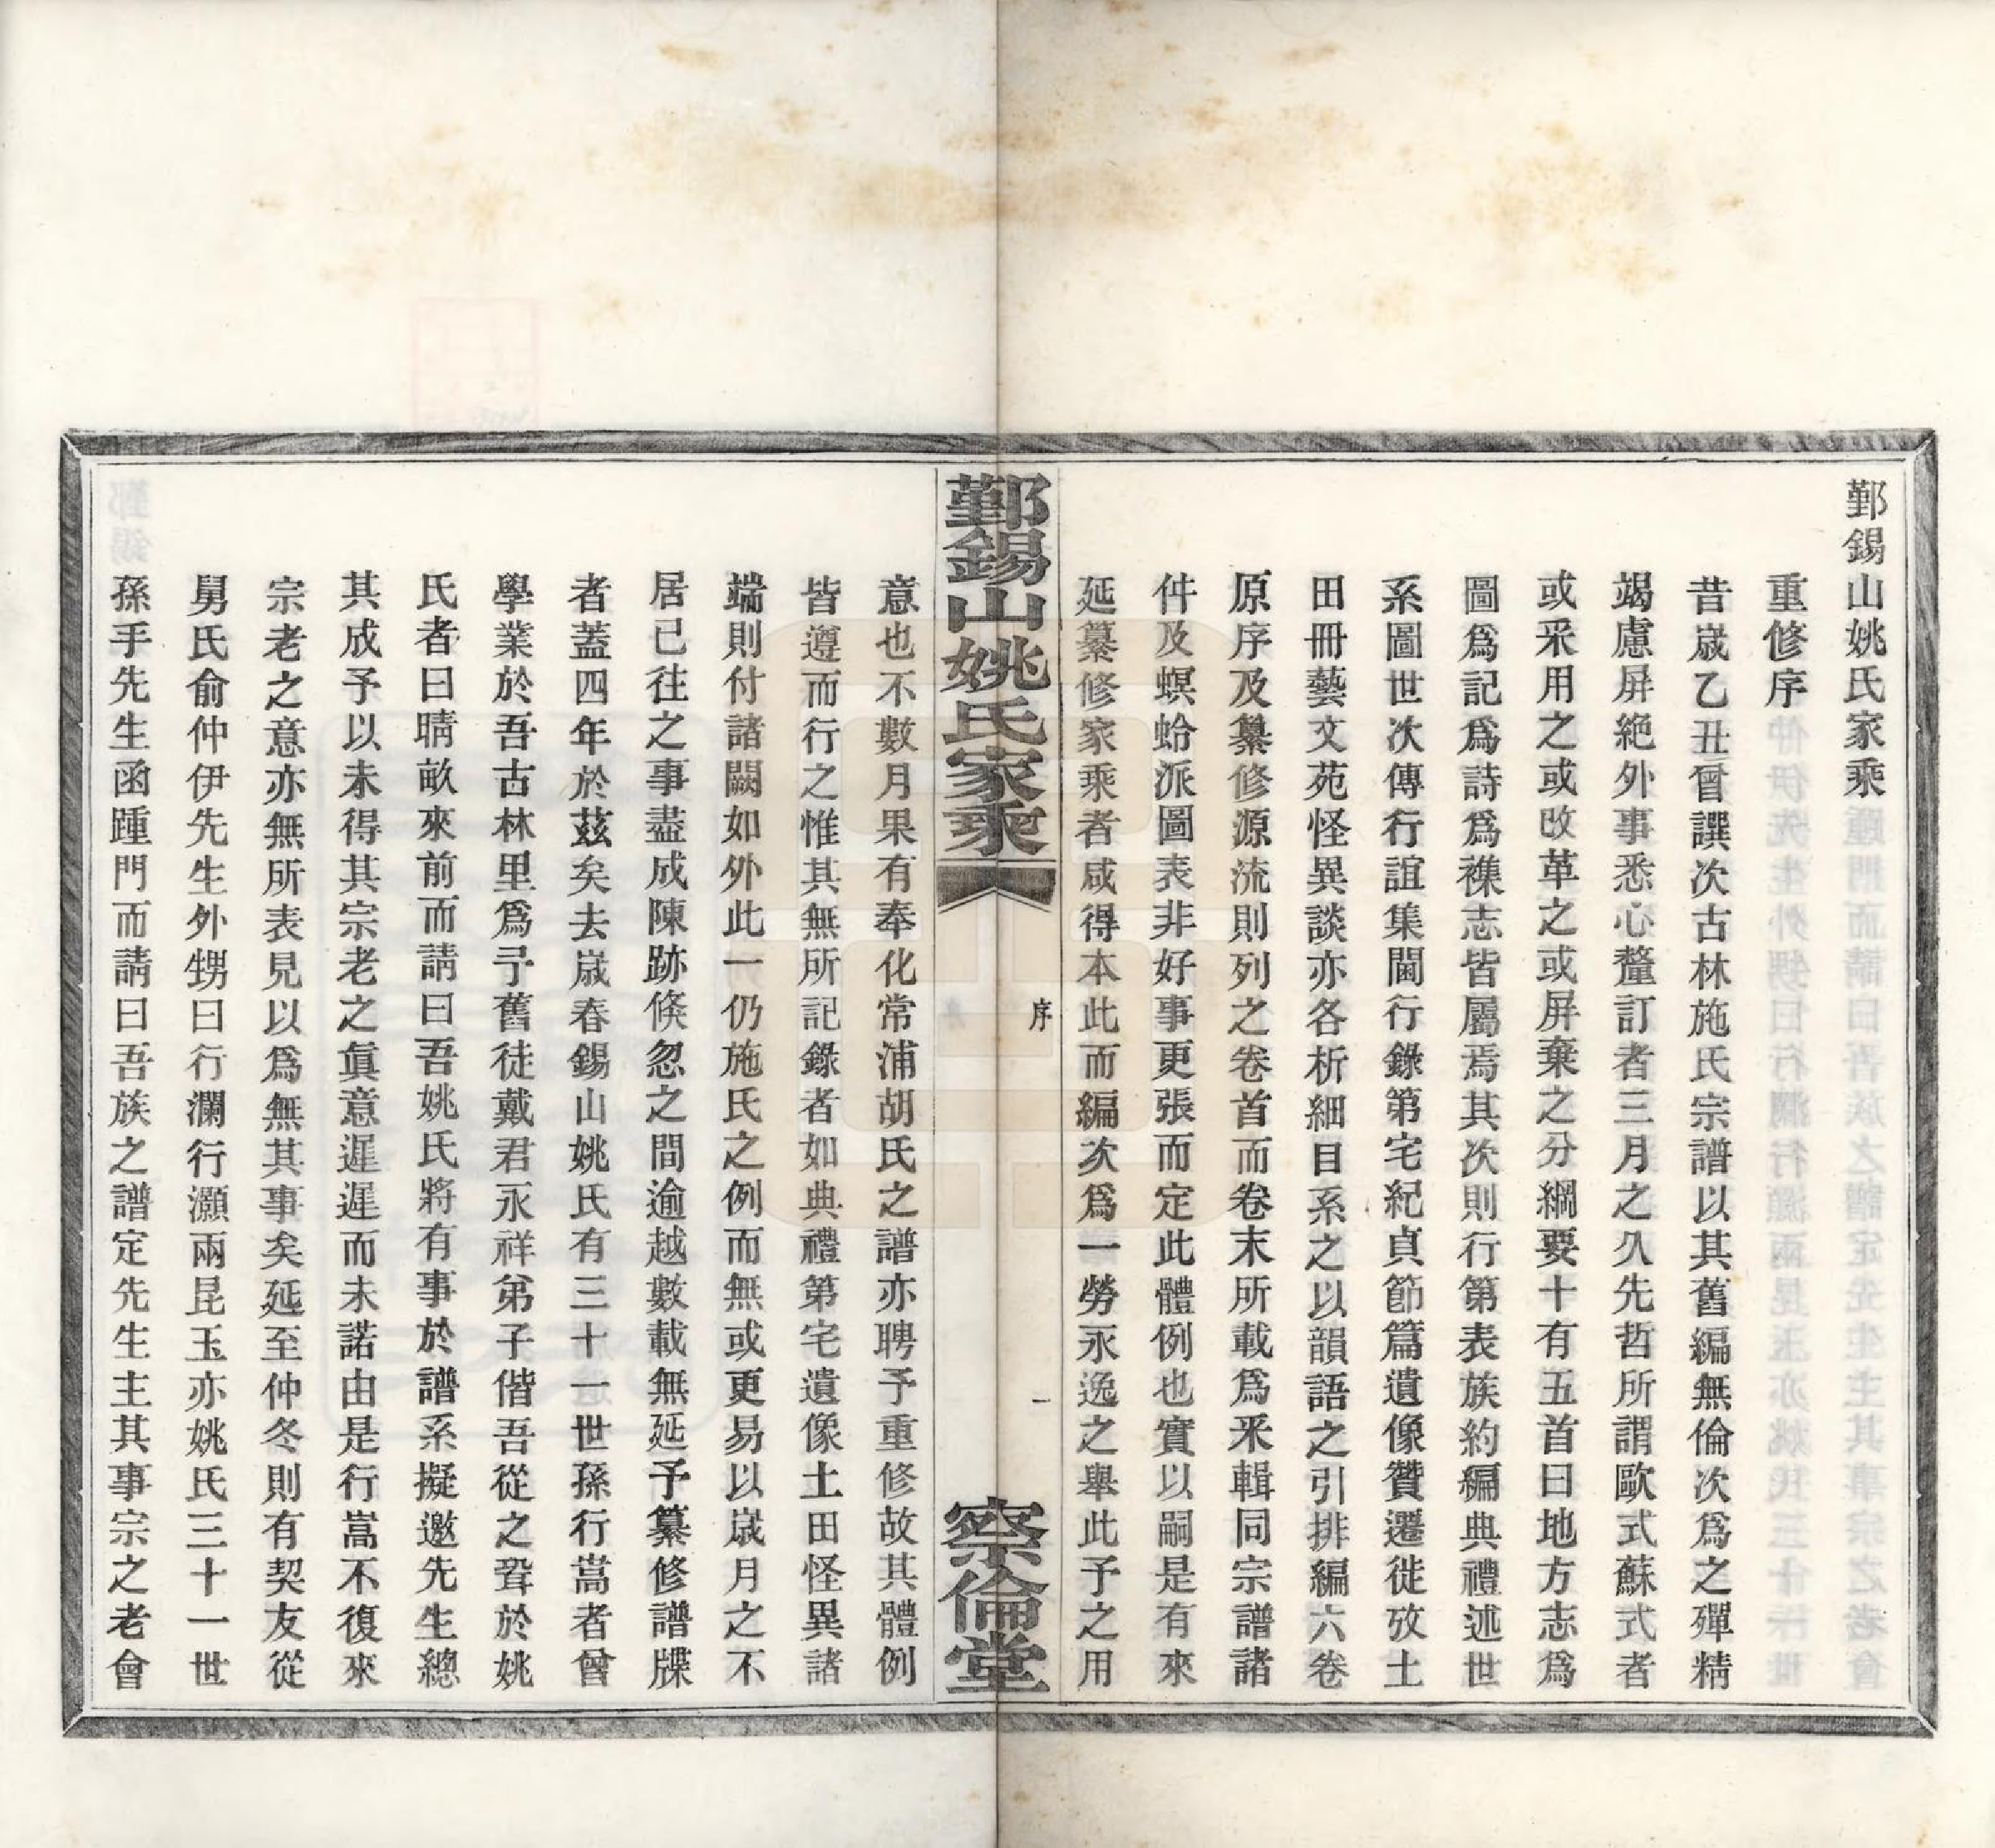 鄞錫山姚氏家乘
重修序
昔嵗乙丑曾譔次古林施氏宗譜以其舊編無倫次爲之殫精
竭慮屏絶外事悉心釐訂者三月之久先哲所謂歐式蘇式者
或采用之或改革之或屏棄之分綱要十有五首曰地方志爲
圖爲記爲詩爲襍志皆屬焉其次則行第表族約編典禮述世
系圖世次傳行誼集閫行錄第宅紀貞節篇遺像贊遷徙攷土
田冊藝文苑怪異談亦各析細目系之以韻語之引排編六卷
原序及纂修源流則列之卷首而卷末所載爲釆輯同宗譜諸
件及螟蛉派圖表非好事更張而定此體例也實以嗣是有來
延纂修家乘者咸得本此而編次爲一勞永逸之舉此予之用
鄞錫山姚氏家乘
序
一
察倫堂
意也不數月果有奉化常浦胡氏之譜亦聘予重修故其體例
皆遵而行之惟其無所記錄者如典禮第宅遺像土田怪異諸
端則付諸闕如外此一仍施氏之例而無或更易以嵗月之不
居已往之事盡成陳跡倐忽之間逾越數載無延予纂修譜牒
者蓋四年於茲矣去嵗春錫山姚氏有三十一世孫行嵩者曾
學業於吾古林里爲予舊徒戴君永祥弟子偕吾從之聟於姚
氏者曰晴畝來前而請曰吾姚氏將有事於譜系擬邀先生總
其成予以未得其宗老之眞意遲遲而未諾由是行嵩不復來
宗老之意亦無所表見以爲無其事矣延至仲冬則有契友從
舅氏俞仲伊先生外甥曰行瀾行灝兩昆玉亦姚氏三十一世
孫手先生函踵門而請曰吾族之譜定先生主其事宗之老會